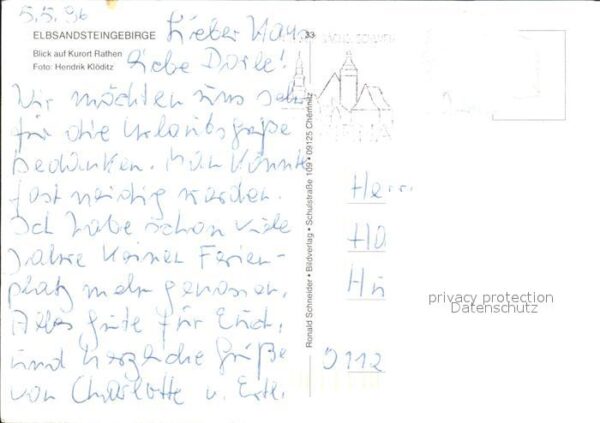 5.5.96
ELBSANDSTEINGEBIRGE
Blick auf Kurort Rathen
Foto: Hendrik Klöditz
Lieber Hans
Liebe Dorle!
Wir möchten uns sehr
für die Urlaubsgrüße
bedanken. Man könnte
fast neidig werden.
Ich habe schon viele
Jahre keinen Ferien-
platz mehr genossen.
Alles gute für Euch,
und herzliche Grüße
von Charlotte u.
33
Ronald Schneider • Bildverlag • Schulstraße 109 • 09125 Chemnitz
Herr
Ha
Hu
privacy protection
Datenschutz